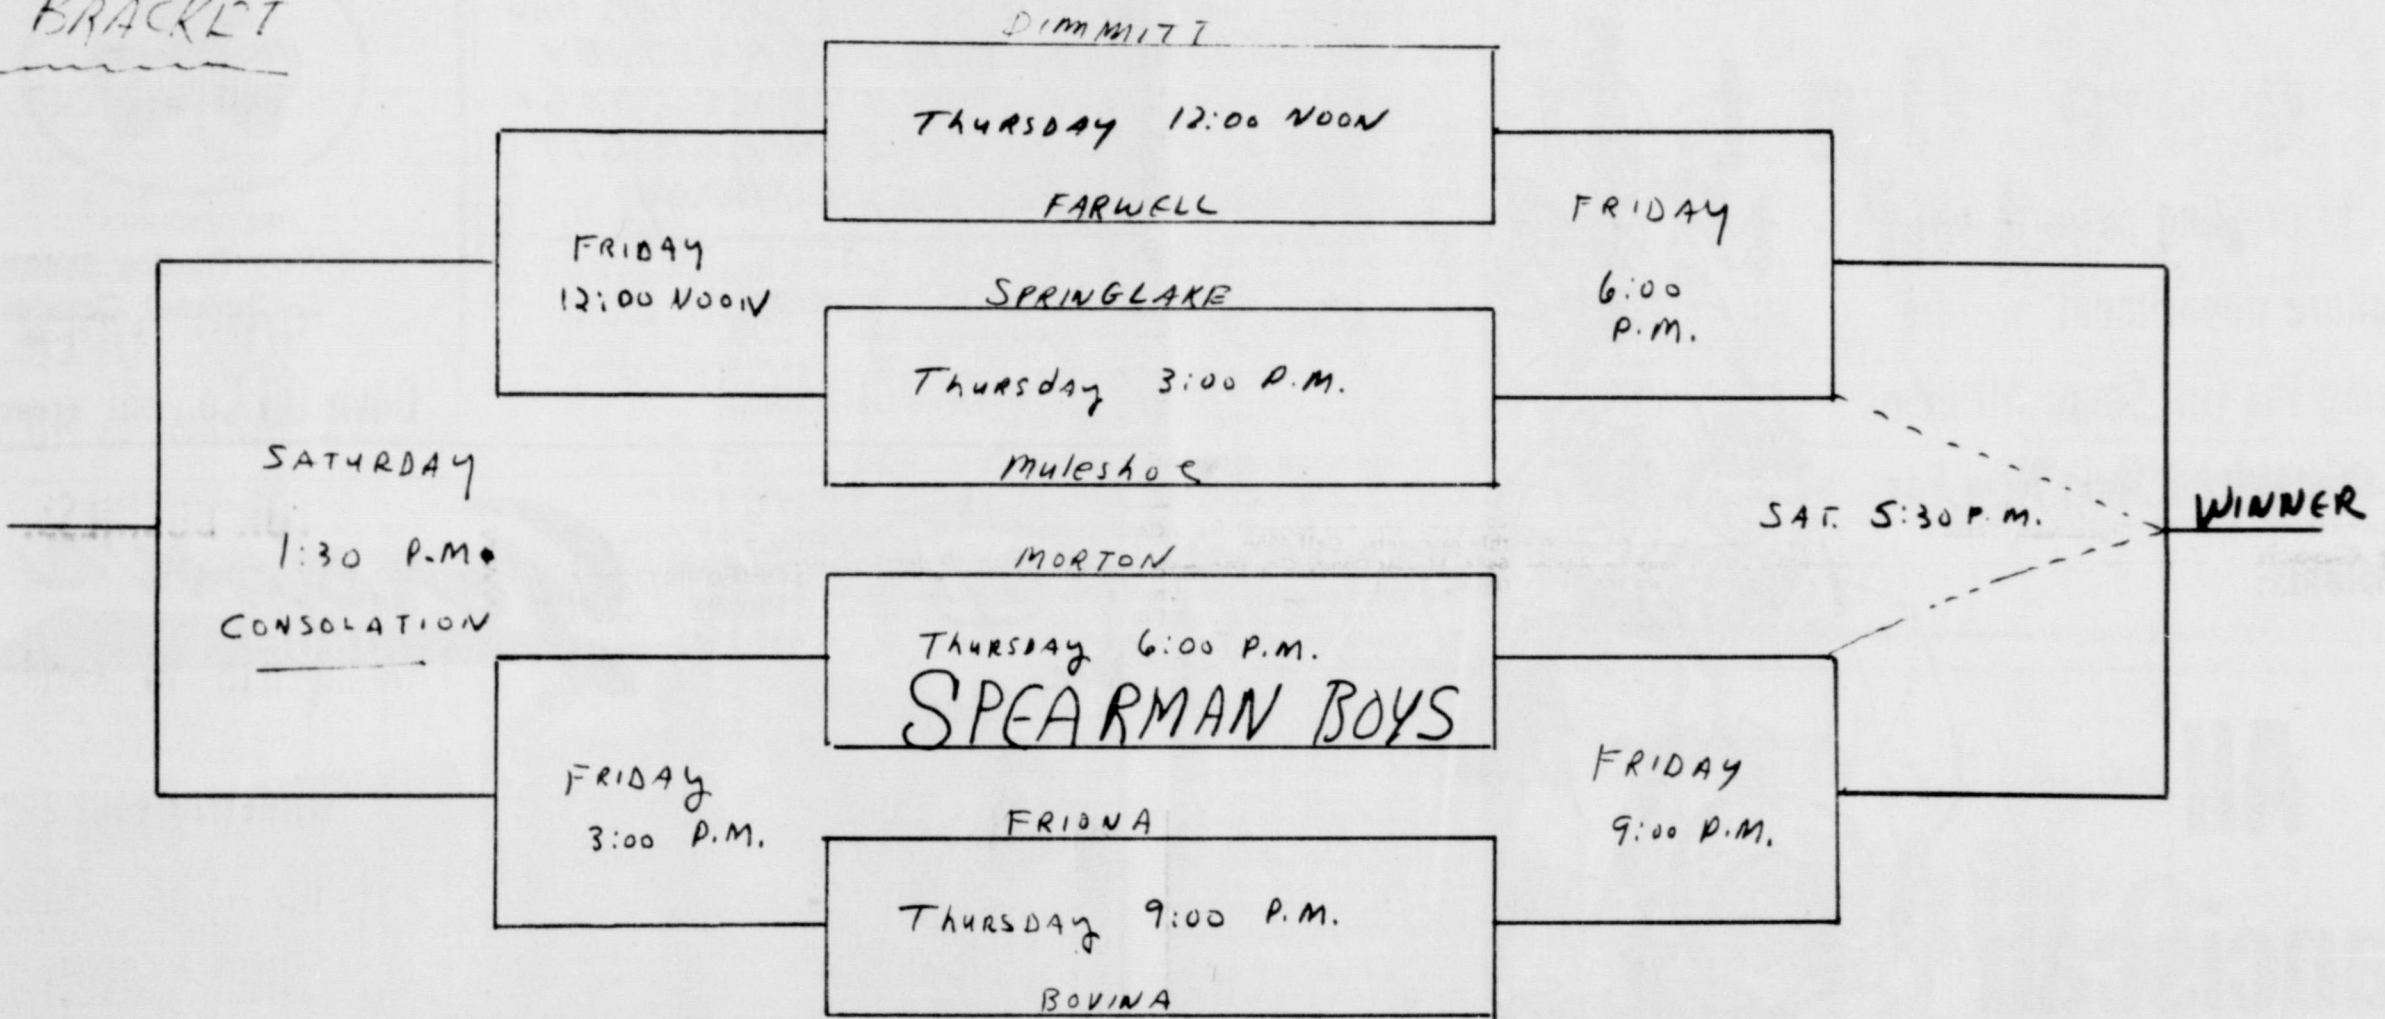 BRACKET
DIMMITT
THURSDAY 12:00 NOON
FARWELL
FRIDAY
12:00 NOON
SPRINGLAKE
Thursday 3:00 P.M.
Muleshoe
FRIDAY
6:00
P.M.
SATURDAY
1:30 P.M.
CONSOLATION
SAT. 5:30 P.M.
WINNER
MORTON
THURSDAY 6:00 P.M.
SPEARMAN BOYS
FRIDAY
3:00 P.M.
FRIONA
THURSDAY 9:00 P.M.
BOVINA
FRIDAY
9:00 P.M.